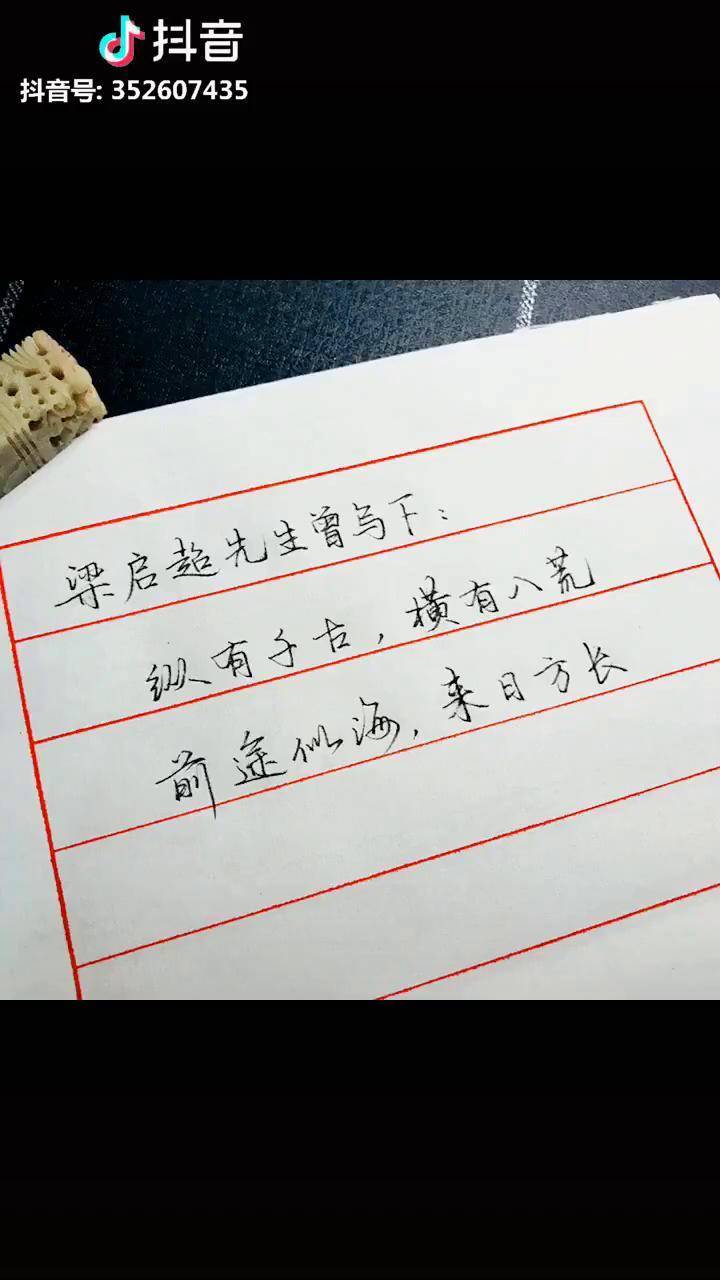 抖音
抖音号: 352607435
梁启超先生曾写下：
纵有千古，横有八荒
前途似海，来日方长